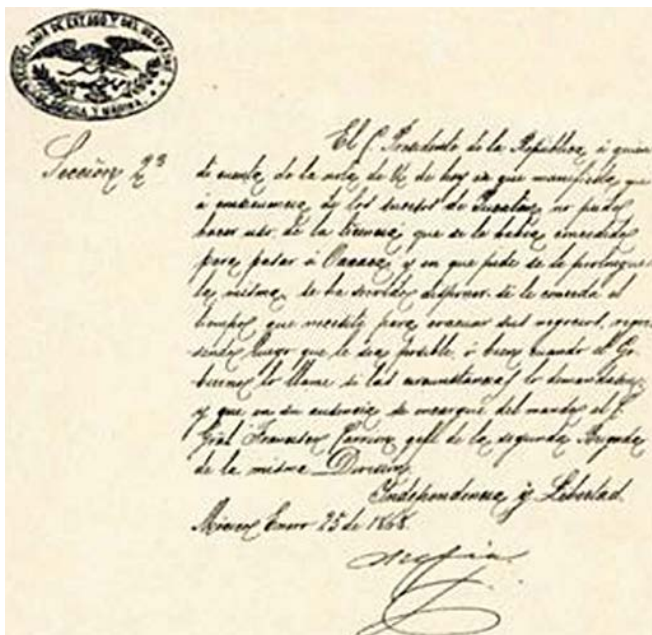 SECRETARIA DE ESTADO Y DEL DESPACHO
DE GUERRA Y MARINA.
Sección 2ª
El C. Presidente de la República, á quien
dí cuenta de la nota de V. de hoy en que manifiesta que
á consecuencia de los sucesos de Yucatan no pudo
hacer uso de la licencia que se le habia concedido
para pasar á Oaxaca y en que pide se le prolongue
la misma, se ha servido disponer se le conceda el
tiempo que necesite para evacuar sus negocios, regre
sando luego que le sea posible, ó bien cuando el Go-
bierno lo llame si las circunstancias lo demandasen
y que en su ausencia se encargue del mando el C.
Gral Francisco Carrion gefe de la segunda Brigada
de la misma Division.
Independencia y Libertad.
México Enero 25 de 1868.
Mejia